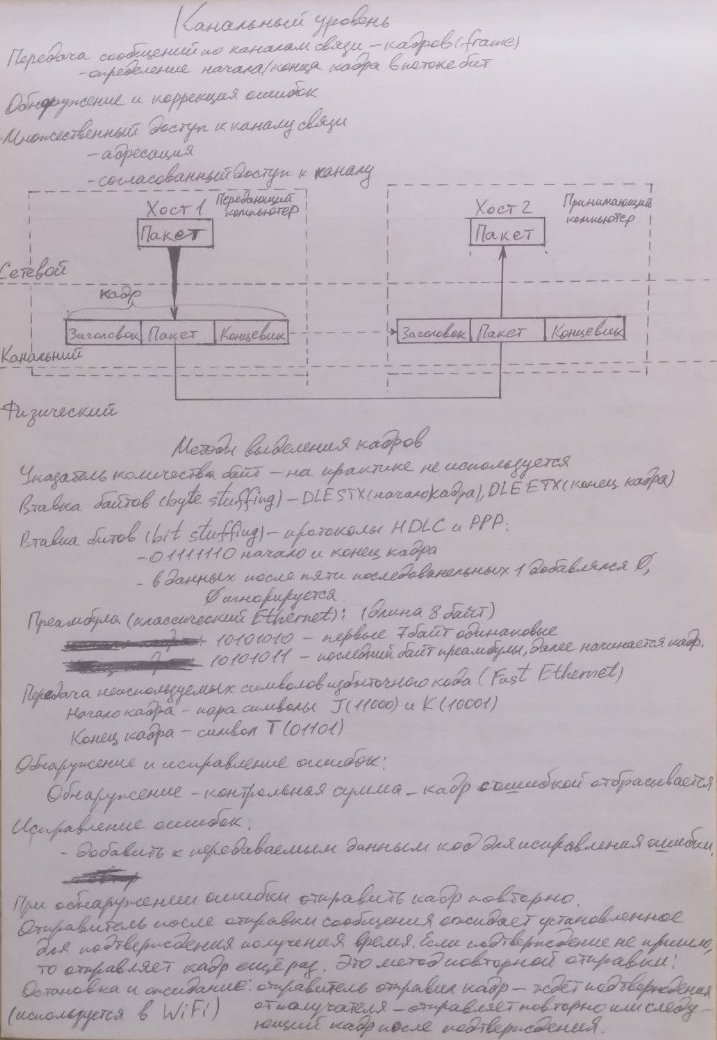 Канальный уровень
Передача сообщений по каналам связи – кадров (frame)
- определение начала/конца кадра в потоке бит
Обнаружение и коррекция ошибок
Множественный доступ к каналу связи
- адресация
- согласованный доступ к каналу
Хост 1 Передающий компьютер
Пакет
Хост 2 Принимающий компьютер
Пакет
Сетевой
кадр
Заголовок Пакет Концевик
Заголовок Пакет Концевик
Канальний
Физический
Методы выделения кадров
Указатель количества байт – на практике не используется
Втавка байтов (byte stuffing) – DLE STX (начало кадра), DLE ETX (конец кадра)
Втавка битов (bit stuffing) – протоколы HDLC и PPP:
- 01111110 начало и конец кадра
- в данных после пяти последовательных 1 добавлялся 0,
0 игнорируется
Преамбула (классический Ethernet): (длина 8 байт)
10101010 – первые 7 байт одинаковые
10101011 – последний байт преамбулы, далее начинается кадр.
Передача неиспользуемых символов избыточного кода (Fast Ethernet)
Начало кадра – пара символы J (11000) и K (10001)
Конец кадра – символ T (01101)
Обнаружение и исправление ошибок:
Обнаружение – контрольная сумма – кадр с ошибкой отбрасывается
Исправление ошибок:
- добавить к передаваемым данным код для исправления ошибки.
При обнаружении ошибки отправить кадр повторно.
Отправитель после отправки сообщения ожидает установленное
для подтверждения получения время. Если подтверждение не пришло,
то отправляет кадр ещё раз. Это метод повторной отправки:
Остановка и ожидание: отправитель отправил кадр – ждёт подтверждения
(используется в WiFi) от получателя – отправляет повторно или следу-
ющий кадр после подтверждения.